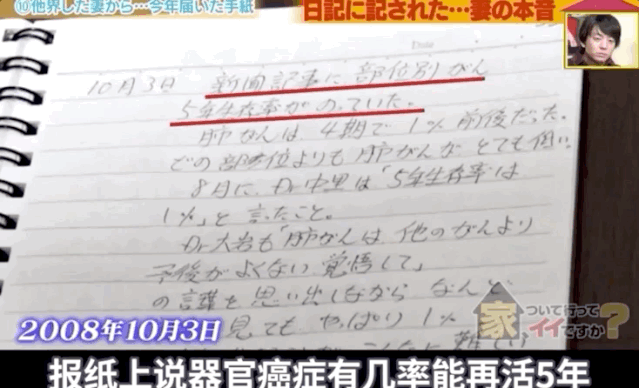 ⑩他界した妻から…今年届いた手紙
日記に記された…妻の本音
Date
10月3日 新聞記事に部位別がん
5年生存率がのっていた。
肺がんは4期で1%前後だった。
どの部位よりも肺がんがとても低い。
8月に、Dr中里は「5年生存率は
1%」と言ったこと。
Dr大岩も「肺がんは他のがんより
予後がよくない覚悟して」
の言葉を思い出しながらなんと
見てもやっぱり1%
難しい
2008年10月3日
家、ついて行ってイイですか?
报纸上说器官癌症有几率能再活5年